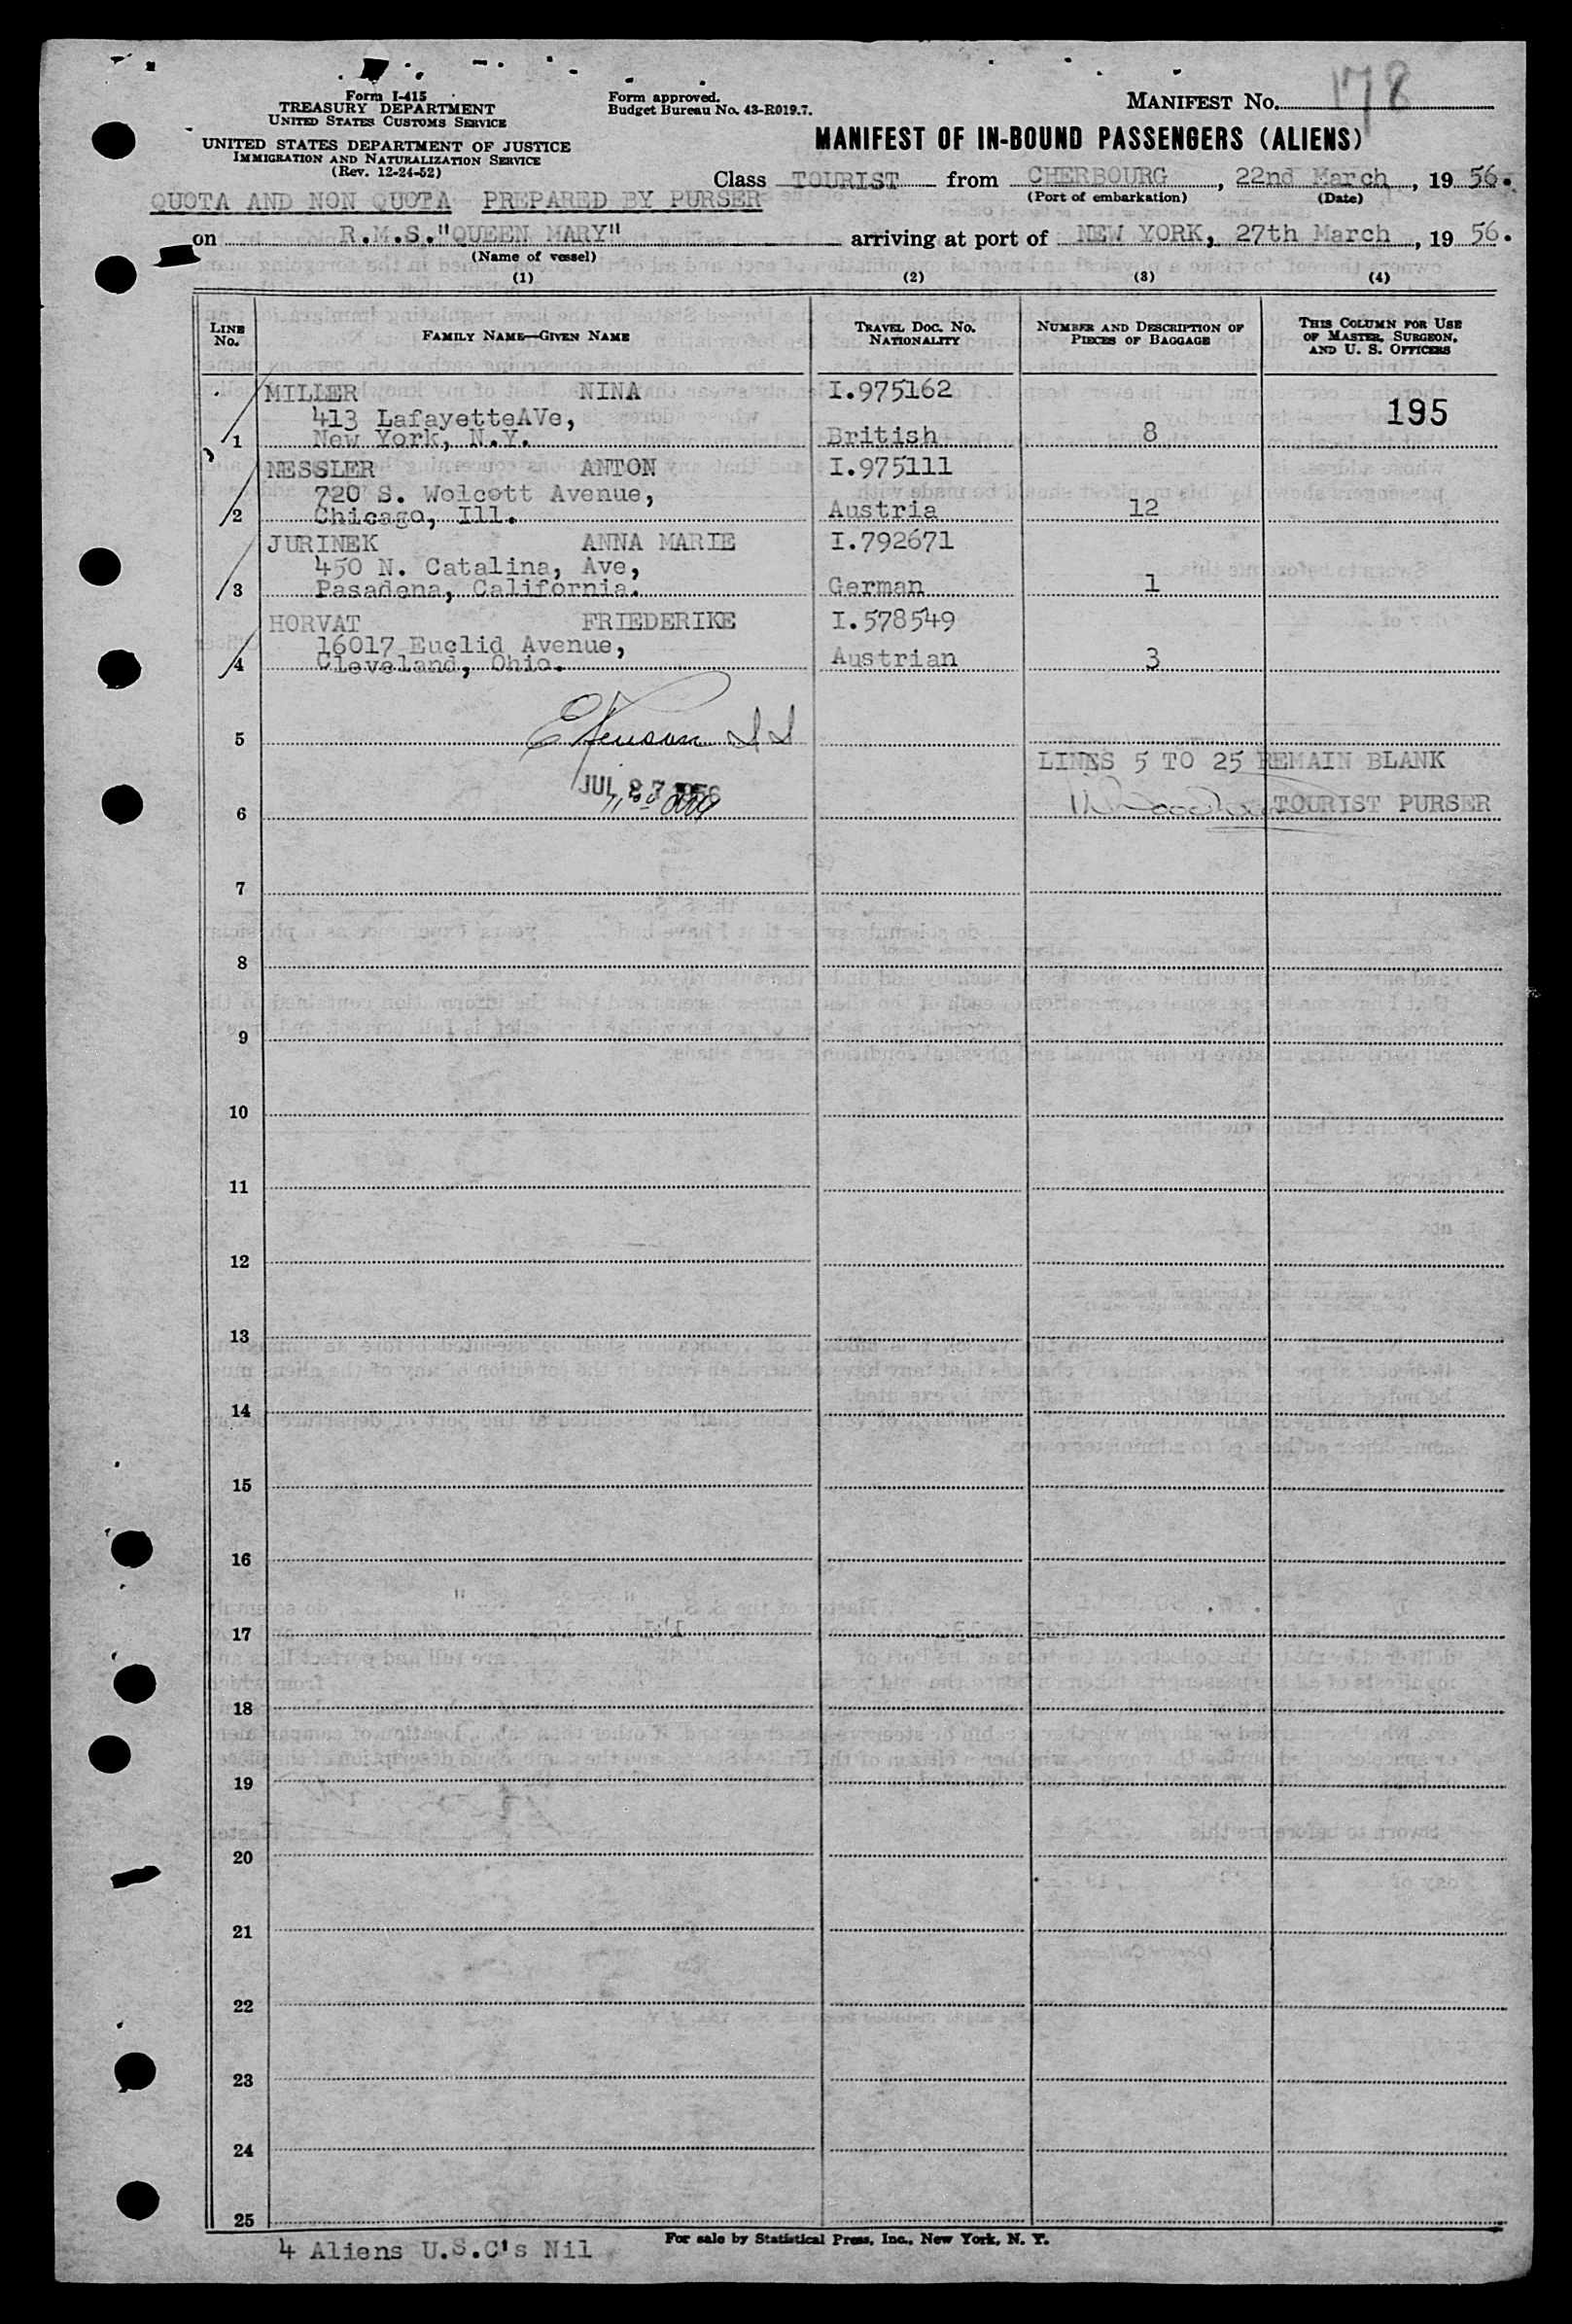 178
Form I-415
TREASURY DEPARTMENT
UNITED STATES CUSTOMS SERVICE
UNITED STATES DEPARTMENT OF JUSTICE
IMMIGRATION AND NATURALIZATION SERVICE
(Rev. 12-24-52)
Form approved.
Budget Bureau No. 43-R019.7.
MANIFEST NO.
MANIFEST OF IN-BOUND PASSENGERS (ALIENS)
Class TOURIST from CHERBOURG, 22nd March, 19 56.
(Port of embarkation) (Date)
QUOTA AND NON QUOTA PREPARED BY PURSER
on R.M.S."QUEEN MARY" arriving at port of NEW YORK, 27th March, 19 56.
(Name of vessel)
(1) (2) (3) (4)
LINE NO. FAMILY NAME—GIVEN NAME TRAVEL DOC. NO. NATIONALITY NUMBER AND DESCRIPTION OF PIECES OF BAGGAGE THIS COLUMN FOR USE OF MASTER, SURGEON, AND U. S. OFFICERS
MILLER NINA I.975162
413 LafayetteAVe, 195
1 New York, N.Y. British 8
NESSLER ANTON I.975111
720 S. Wolcott Avenue,
2 Chicago, Ill. Austria 12
JURINEK ANNA MARIE I.792671
450 N. Catalina, Ave,
3 Pasadena, California. German 1
HORVAT FRIEDERIKE I.578549
16017 Euclid Avenue,
4 Cleveland, Ohio. Austrian 3
5
LINES 5 TO 25 REMAIN BLANK
JUL 27 1956
6 TOURIST PURSER
7
8
9
10
11
12
13
14
15
16
17
18
19
20
21
22
23
24
25
4 Aliens U.S.C's Nil
For sale by Statistical Press, Inc., New York, N. Y.